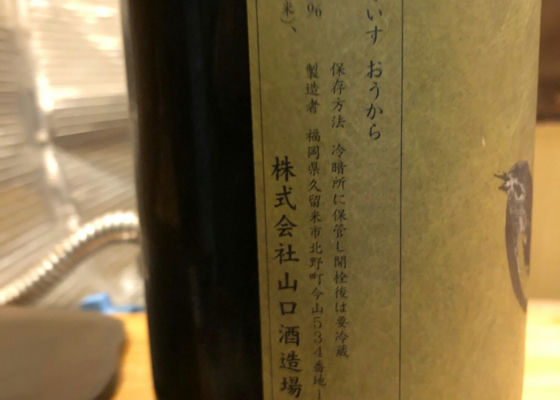 いす おうから
保存方法 冷暗所に保管し開栓後は要冷蔵
製造者 福岡県久留米市北野町今山534番地
%
米)、
株式会社山口酒造場